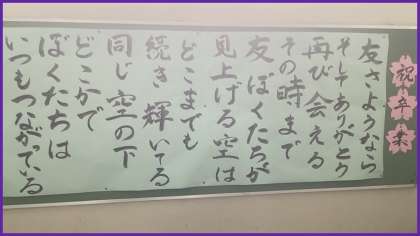 祝卒業
友さようなら
そしてありがとう
再び会える
その時まで
友ぼくたちが
見上げる空は
どこまでも
続き輝いてる
同じ空の下
どこかで
ぼくたちは
いつもつながっている